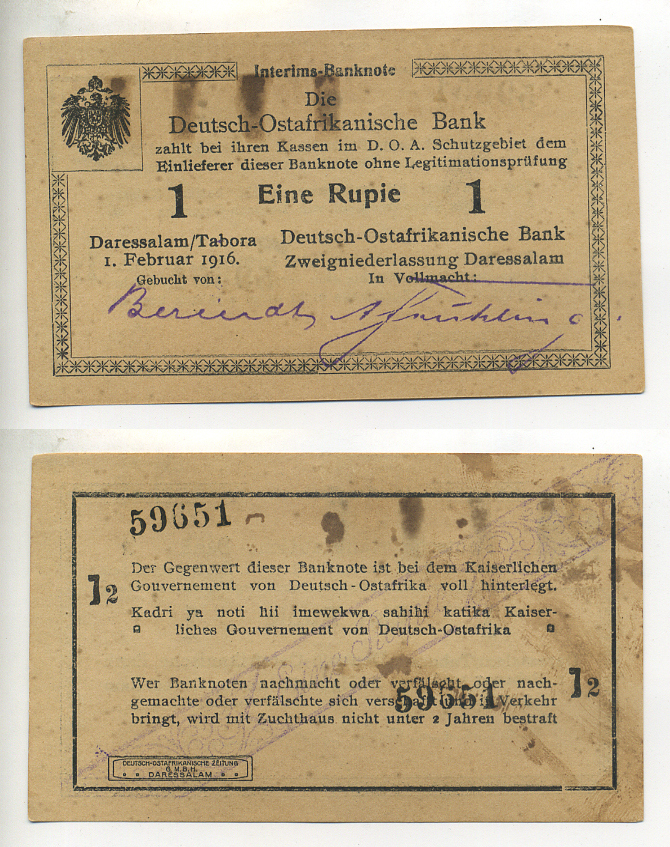 Interims-Banknote
Die
Deutsch-Ostafrikanische Bank
zahlt bei ihren Kassen im D. O. A. Schutzgebiet dem
Einlieferer dieser Banknote ohne Legitimationsprüfung
1 Eine Rupie 1
Daressalam/Tabora
1. Februar 1916.
Gebucht von:
Deutsch-Ostafrikanische Bank
Zweigniederlassung Daressalam
In Vollmacht:
59651
Der Gegenwert dieser Banknote ist bei dem Kaiserlichen
Gouvernement von Deutsch-Ostafrika voll hinterlegt.
J2
Kadri ya noti hii imewekwa sahihi katika Kaiser-
liches Gouvernement von Deutsch-Ostafrika
Wer Banknoten nachmacht oder verfälscht oder nach-
gemachte oder verfälschte sich verschafft und in Verkehr
bringt, wird mit Zuchthaus nicht unter 2 Jahren bestraft
59651
J2
DEUTSCH-OSTAFRIKANISCHE ZEITUNG
G.M.B.H.
DARESSALAM